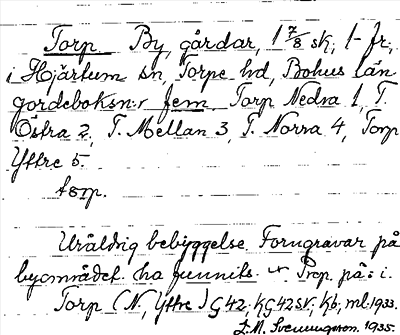 Torp By, gårdar, 1 7/8 sk, 1- fr,
i Hjärtum sn, Torpe hd, Bohus län
jordeboksn:r fem Torp Nedra 1, T.
Östra 2, T. Mellan 3, T. Norra 4, Torp
Yttre 5.
tɔrp.
Uråldrig bebyggelse. Forngravar på
byområdet ha funnits. Prep. på: i.
Torp (N, Yttre) G42, KG42SV, Kb, ml. 1933.
L.M. Svenungsson. 1935.